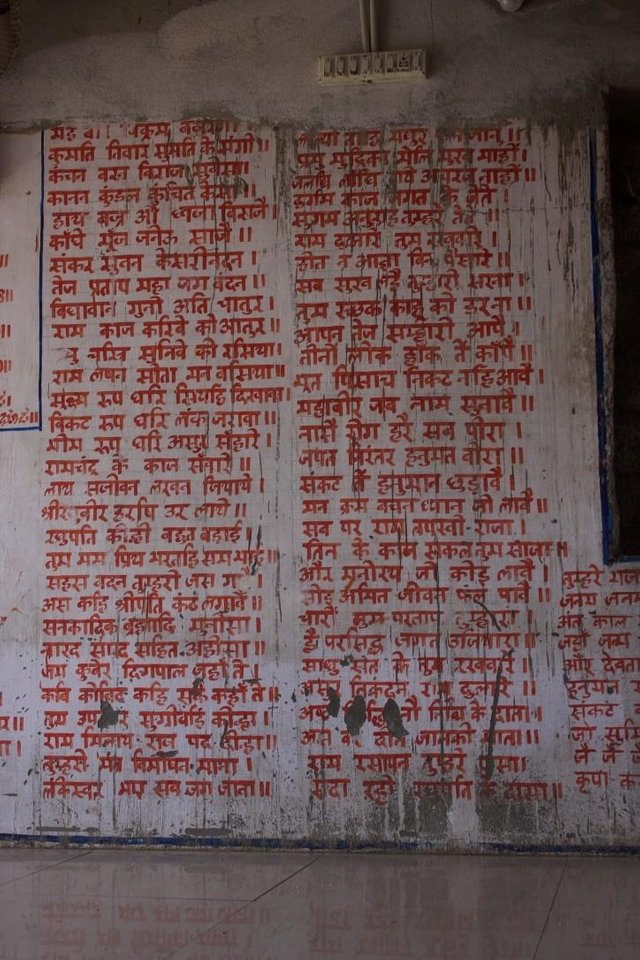 कुमति निवार सुमति के संगी॥
कंचन वरन विराज सुवेसा।
कानन कुंडल कुंचित केसा॥
हाथ बज्र औ ध्वजा विराजै।
काँधे मूंज जनेऊ साजै॥
संकर सुवन केसरीनंदन।
तेज प्रताप महा जग वंदन॥
विद्यावान गुनी अति चातुर।
राम काज करिवे को आतुर॥
चरित्र सुनिवे को रसिया।
राम लषन सीता मन वसिया॥
सूक्ष्म रूप धरि सियहि दिखावा।
विकट रूप धरि लंक जरावा॥
भीम रूप धरि असुर सँहारे।
रामचंद्र के काज सँवारे॥
लाय सजीवन लखन जियाये।
श्रीरघुवीर हरषि उर लाये॥
रघुपति कीन्ही बहुत बड़ाई।
तुम मम प्रिय भरतहि सम भाई॥
सहस वदन तुम्हरो जस गावैं।
अस कहि श्रीपति कंठ लगावैं॥
सनकादिक ब्रह्मादि मुनीसा।
नारद सारद सहित अहीसा॥
जम कुवेर दिगपाल जहाँ ते।
कवि कोविद कहि सके कहाँ ते॥
तुम उपकार सुग्रीवहिं कीन्हा।
राम मिलाय राज पद दीन्हा॥
तुम्हरो मंत्र विभीषन माना।
लंकेस्वर भए सब जग जाना॥
प्रभु मुद्रिका मेलि मुख माहीं।
जलधि लाँघि गये अचरज नाहीं॥
दुर्गम काज जगत के जेते।
सुगम अनुग्रह तुम्हरे तेते॥
राम दुआरे तुम रखवारे।
होत न आज्ञा बिनु पैसारे॥
सब सुख लहै तुम्हारी सरना।
तुम रच्छक काहू को डर ना॥
आपन तेज सम्हारो आपै।
तीनों लोक हाँक तें काँपै॥
भूत पिसाच निकट नहिं आवै।
महावीर जब नाम सुनावै॥
नासै रोग हरै सब पीरा।
जपत निरंतर हनुमत वीरा॥
संकट तें हनुमान छुड़ावै।
मन क्रम वचन ध्यान जो लावै॥
सब पर राम तपस्वी राजा।
तिन के काज सकल तुम साजा॥
और मनोरथ जो कोइ लावै।
सोइ अमित जीवन फल पावै॥
चारों जुग परताप तुम्हारा।
है परसिद्ध जगत उजियारा॥
साधु संत के तुम रखवारे।
असुर निकंदन राम दुलारे॥
अष्ट सिद्धि नौ निधि के दाता।
अस बर दीन जानकी माता॥
राम रसायन तुम्हरे पासा।
सदा रहो रघुपति के दासा॥
तुम्हरे
जनम जनम
अंत काल
जहाँ जन्म
और देवता
हनुमत
संकट
जो सुमि
जै जै
कृपा क